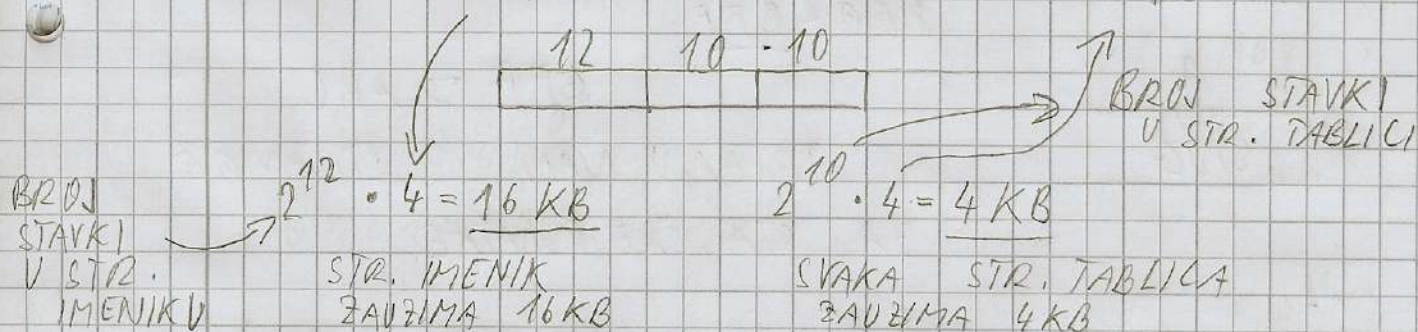 12 10 · 10
BROJ STAVKI
U STR. TABLICI
BROJ
STAVKI
U STR.
IMENIKU
2^12 · 4 = 16 KB
STR. IMENIK
ZAUZIMA 16 KB
2^10 · 4 = 4 KB
SVAKA STR. TABLICA
ZAUZIMA 4 KB